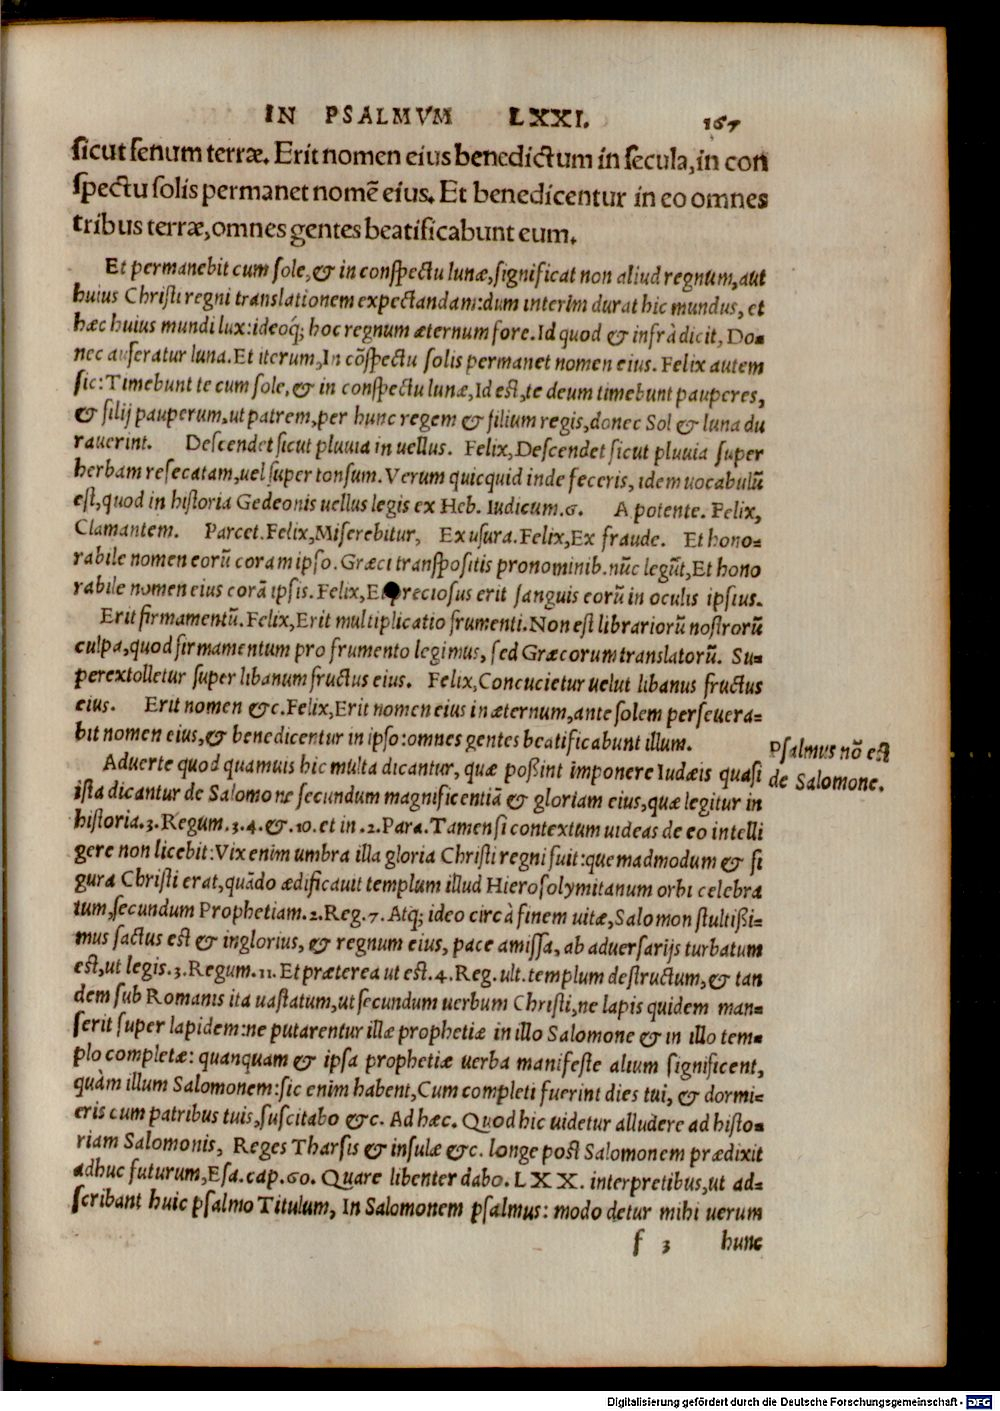 IN PSALMVM LXXI. 167
sicut fenum terræ. Erit nomen eius benedictum in secula, in con
spectu solis permanet nomē eius. Et benedicentur in eo omnes
tribus terræ, omnes gentes beatificabunt eum.
Et permanebit cum sole, & in conspectu lunæ, significat non aliud regnum, aut
huius Christi regni translationem expectandam: dum interim durat hic mundus, et
hæc huius mundi lux: ideoq; hoc regnum æternum fore. Id quod & infrà dicit, Do-
nec auferatur luna. Et iterum, In cōspectu solis permanet nomen eius. Felix autem
sic: Timebunt te cum sole, & in conspectu lunæ, Id est, te deum timebunt pauperes,
& filij pauperum, ut patrem, per hunc regem & filium regis, donec Sol & luna du
rauerint. Descendet sicut pluuia in uellus. Felix, Descendet sicut pluuia super
herbam resecatam, uel super tonsum. Verum quicquid inde feceris, idem uocabulū
est, quod in historia Gedeonis uellus legis ex Heb. Iudicum. 6. A potente. Felix,
Clamantem. Parcet. Felix, Miserebitur, Ex usura. Felix, Ex fraude. Et hono-
rabile nomen eorū coram ipso. Græci transpositis pronominib. nūc legūt, Et hono
rabile nomen eius corā ipsis. Felix, Et preciosus erit sanguis eorū in oculis ipsius.
Erit firmamentū. Felix, Erit multiplicatio frumenti. Non est librariorū nostrorū
culpa, quod firmamentum pro frumento legimus, sed Græcorum translatorū. Su-
perextolletur super libanum fructus eius. Felix, Concucietur uelut libanus fructus
eius. Erit nomen &c. Felix, Erit nomen eius in æternum, ante solem perseuera-
bit nomen eius, & benedicentur in ipso: omnes gentes beatificabunt illum.
Psalmus nō est
de Salomone.
Aduerte quod quamuis hic multa dicantur, quæ poßint imponere Iudæis quasi
ista dicantur de Salomone secundum magnificentiā & gloriam eius, quæ legitur in
historia. 3. Regum. 3. 4. &. 10. et in. 2. Para. Tamen si contextum uideas de eo intelli
gere non licebit: Vix enim umbra illa gloria Christi regni fuit: quemadmodum & fi
gura Christi erat, quādo ædificauit templum illud Hierosolymitanum orbi celebra
tum, secundum Prophetiam. 2. Reg. 7. Atq; ideo circà finem uitæ, Salomon stultißi-
mus factus est & inglorius, & regnum eius, pace amissa, ab aduersarijs turbatum
est, ut legis. 3. Regum. 11. Et præterea ut est. 4. Reg. ult. templum destructum, & tan
dem sub Romanis ita uastatum, ut secundum uerbum Christi, ne lapis quidem man-
serit super lapidem: ne putarentur illæ prophetiæ in illo Salomone & in illo tem-
plo completæ: quanquam & ipsa prophetiæ uerba manifeste alium significent,
quàm illum Salomonem: sic enim habent, Cum completi fuerint dies tui, & dormi-
eris cum patribus tuis, suscitabo &c. Ad hæc. Quod hic uidetur alludere ad histo-
riam Salomonis, Reges Tharsis & insulæ &c. longe post Salomonem prædixit
adhuc futurum, Esa. cap. 60. Quare libenter dabo. LXX. interpretibus, ut ad-
scribant huic psalmo Titulum, In Salomonem psalmus: modo detur mihi uerum
f 3 hunc
Digitalisierung gefördert durch die Deutsche Forschungsgemeinschaft - DFG